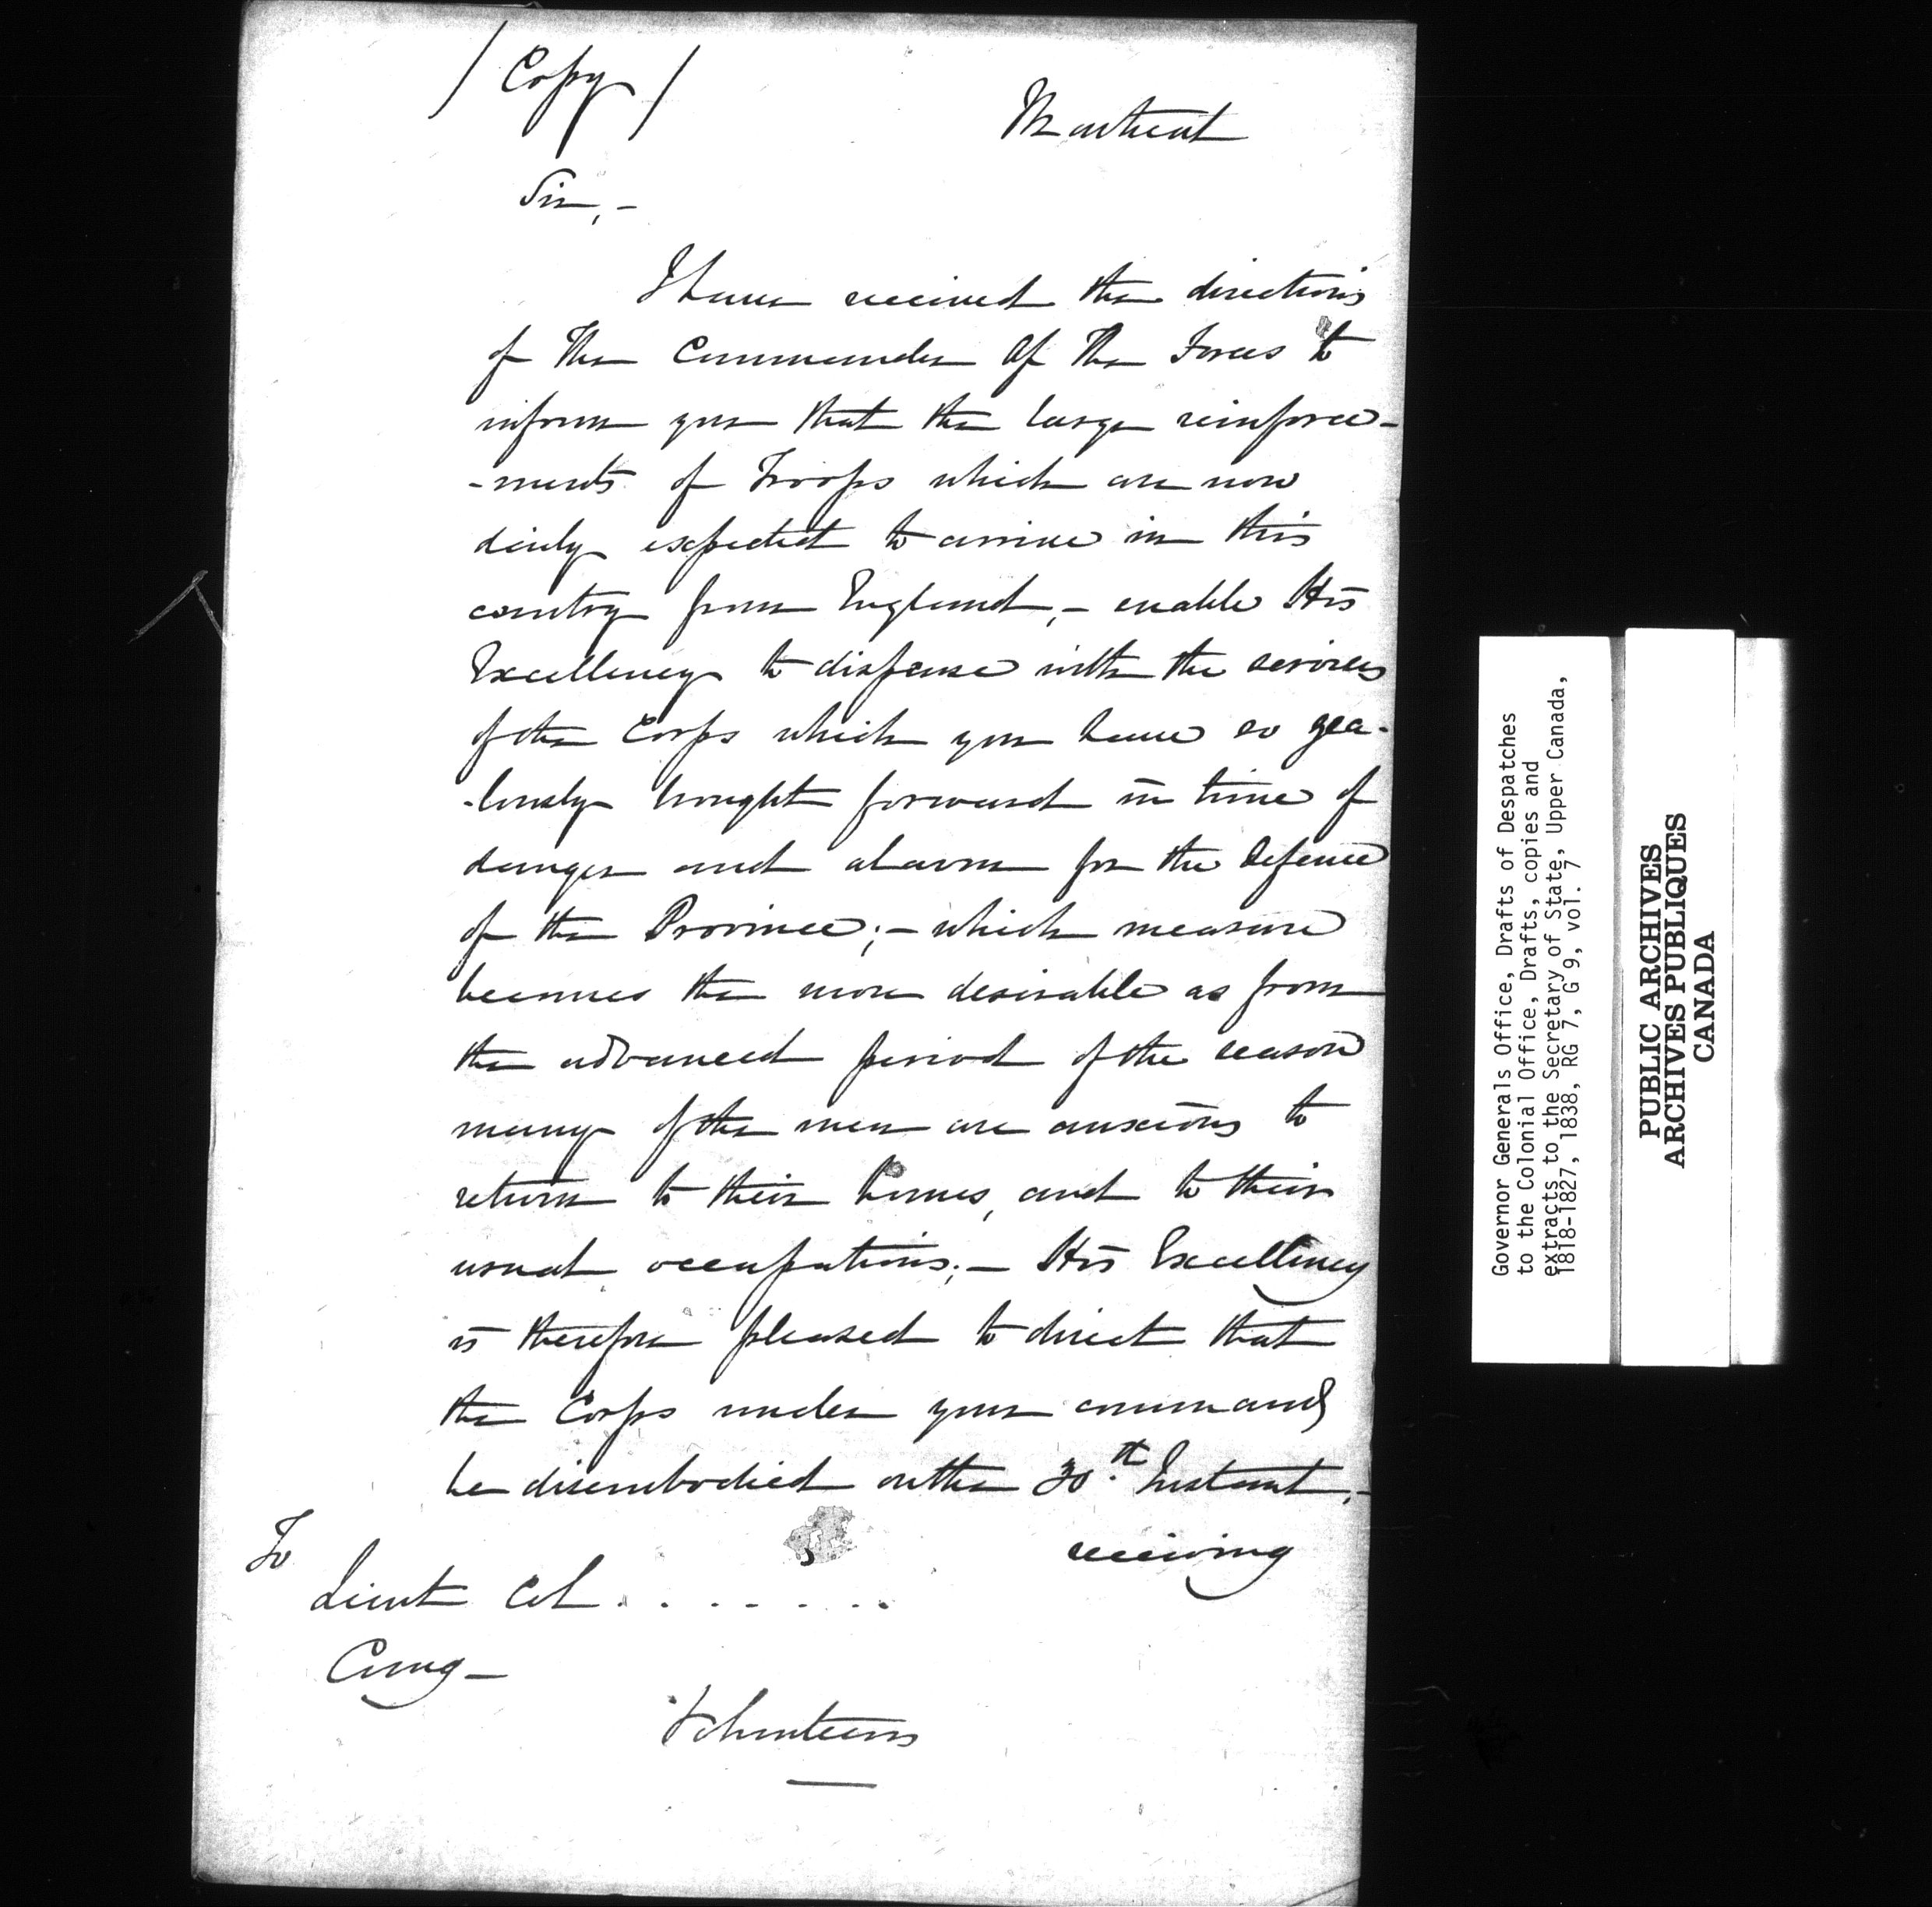 / Copy /
Montreal
Sir, -
I have received the directions
of The Commander Of The Forces to
inform you that the large reinforce-
-ments of Troops which are now
daily expected to arrive in this
country from England, - enable His
Excellency to dispense with the services
of the Corps which you have so zea-
-lously brought forward in time of
danger and alarm for the defence
of the Province; - which measure
becomes the more desirable as from
the advanced period of the season
many of the men are anxious to
return to their homes, and to their
usual occupations; - His Excellency
is therefore pleased to direct that
the Corps under your command
be disembodied on the 30.th Instant, -
receiving
To
Lieut Col. . . . . . . .
Comg -
Volunteers
Governor Generals Office, Drafts of Despatches
to the Colonial Office, Drafts, copies and
extracts to the Secretary of State, Upper Canada,
1818-1827, 1838, RG 7, G 9, vol. 7
PUBLIC ARCHIVES
ARCHIVES PUBLIQUES
CANADA